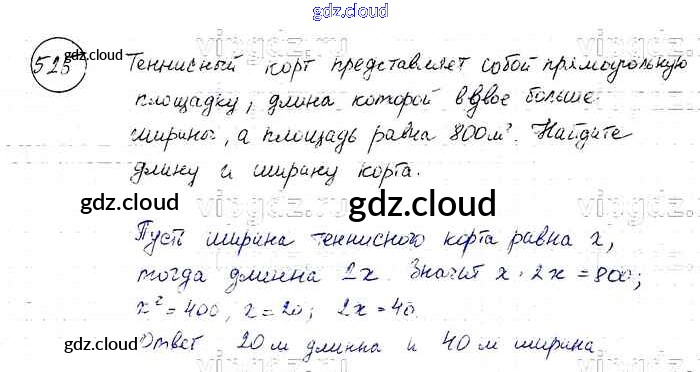 gdz.cloud
525
gdz.cloud
Теннисный корт представляет собой прямоугольную
площадку, длина которой вдвое больше
ширины, а площадь равна 800м². Найдите
длину и ширину корта.
gdz.cloud
gdz.cloud
gdz.cloud
Пусть ширина теннисного корта равна x,
тогда длинна 2x. Значит x · 2x = 800;
x² = 400, x = 20; 2x = 40.
gdz.cloud
Ответ 20 м длинна и 40 м ширина
gdz.cloud